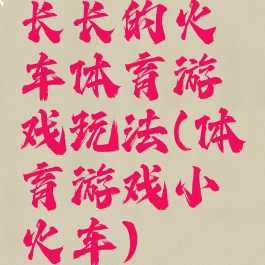 长长的火
车体育游
戏玩法(体
育游戏小
火车)